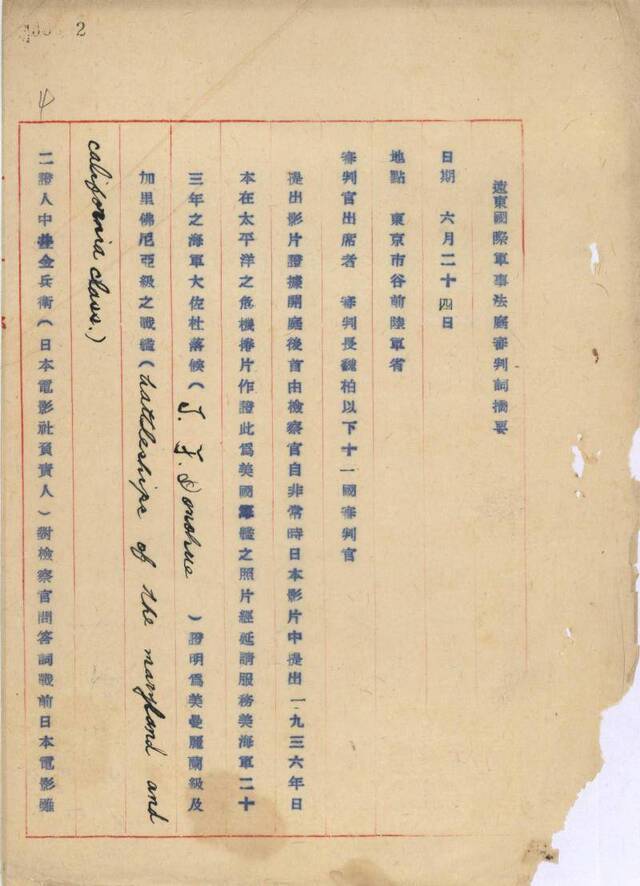 2
4
遠東國際軍事法庭審判詞摘要
日期 六月二十四日
地點 東京市谷前陸軍省
審判官出席者 審判長魏柏以下十一國審判官
提出影片證據開庭後首由檢察官自非常時日本影片中提出一九三六年日
本在太平洋之危機捲片作證此爲美國軍艦之照片經延請服務美海軍二十
三年之海軍大佐杜落候(J. F. Donohue)證明爲美曼麗蘭級及
加里佛尼亞級之戰艦(battleships of the maryland and
california class.)
二證人中井金兵衛(日本電影社負責人)對檢察官問答詞戰前日本電影雖